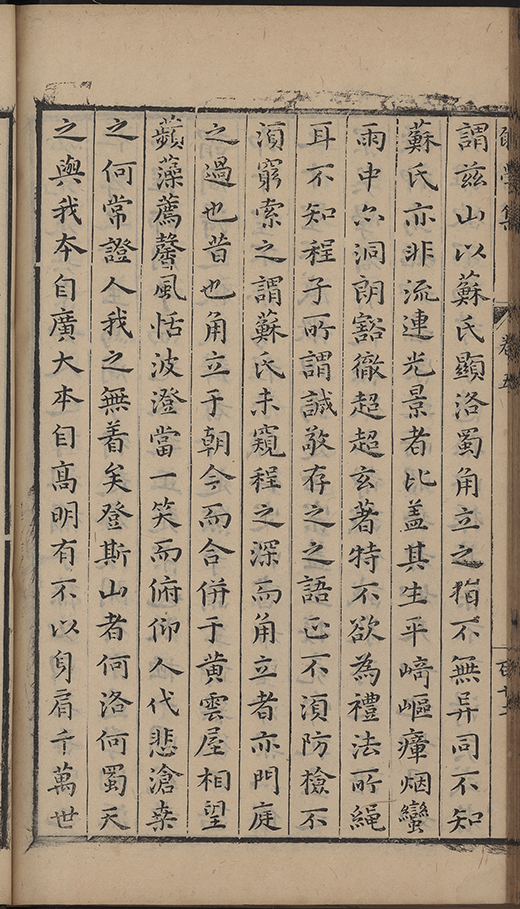 謂茲山以蘇氏顯洛蜀角立之猶不無异同不知
蘇氏亦非流連光景者比盖其生平崎嶇瘴烟蠻
雨中亦洞朗豁徹超超玄著特不欲為禮法所繩
耳不知程子所謂誠敬存之之語正不湏防檢不
湏窮索之謂蘇氏未窺程之深而角立者亦門庭
之過也昔也角立于朝今而合併于黄雲屋相望
蘋藻薦馨風恬波澄當一笑而俯仰人代悲滄桑
之何常證人我之無着矣登斯山者何洛何蜀天
之與我本自廣大本自髙明有不以身肩千萬世
卷五